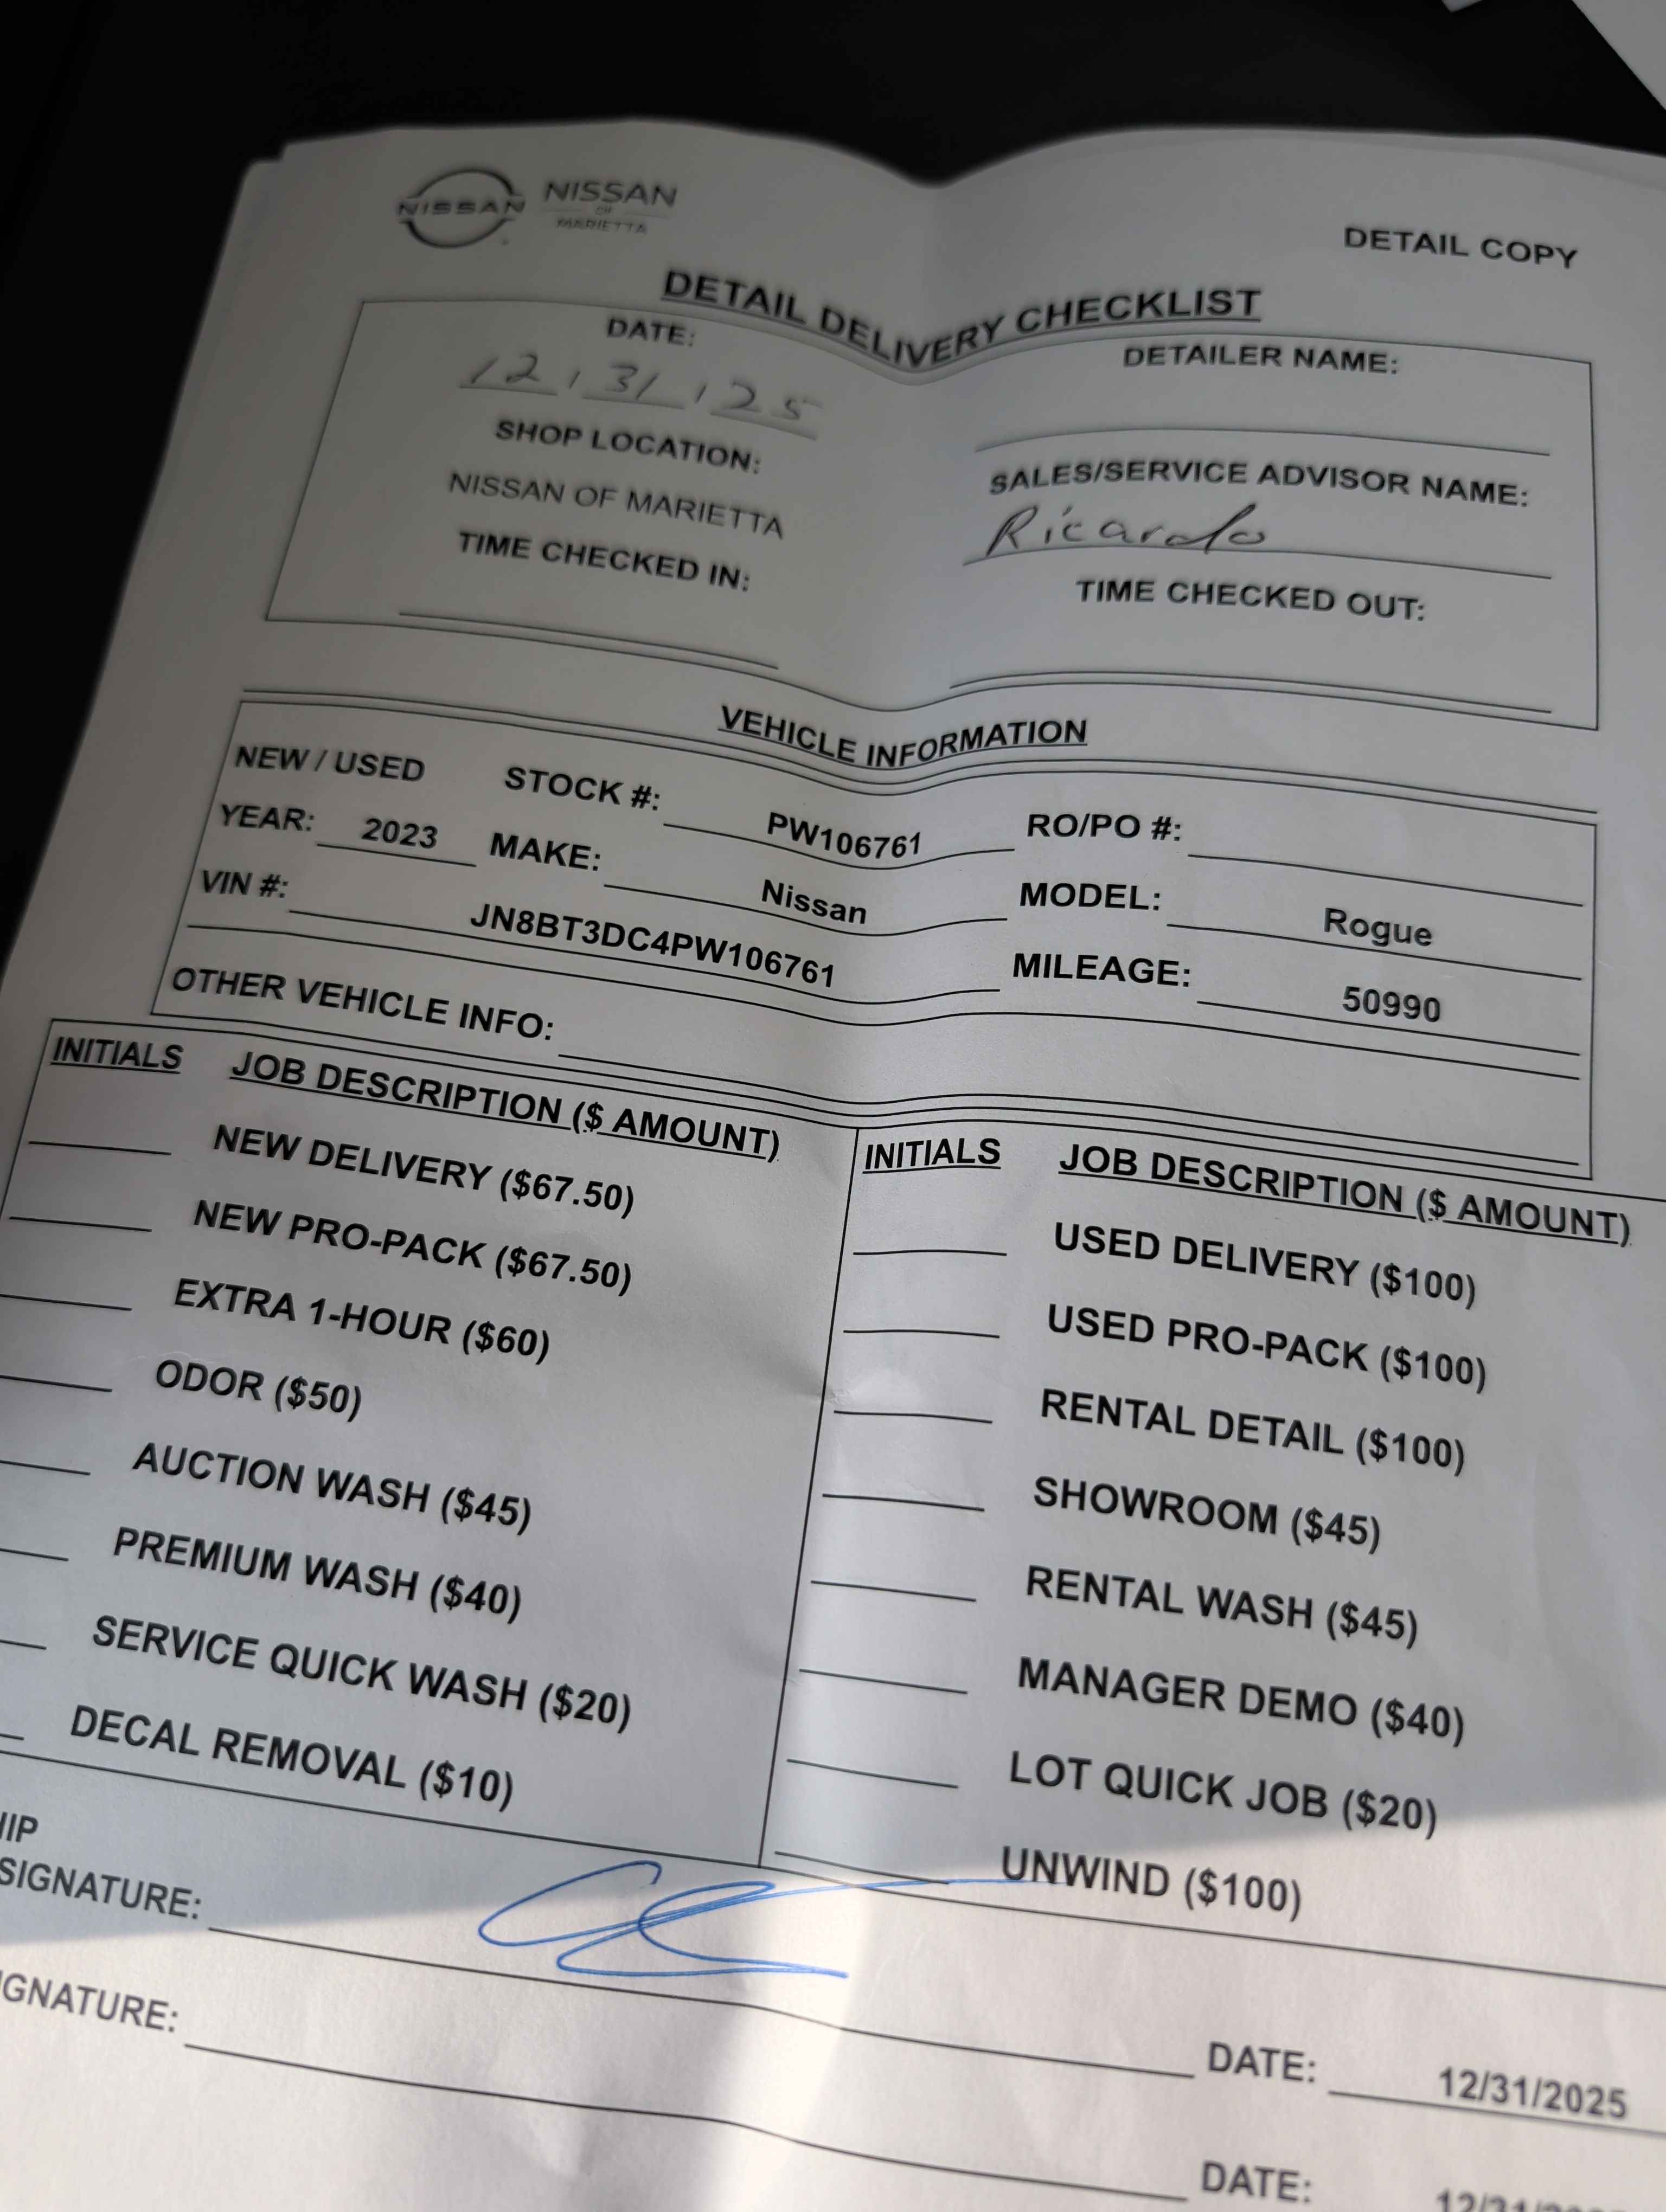 NISSAN
NISSAN
OF
MARIETTA
DETAIL COPY
DETAIL DELIVERY CHECKLIST
DATE:
12 / 31 / 25
DETAILER NAME:
SHOP LOCATION:
NISSAN OF MARIETTA
SALES/SERVICE ADVISOR NAME:
Ricardo
TIME CHECKED IN:
TIME CHECKED OUT:
VEHICLE INFORMATION
NEW / USED STOCK #: PW106761 RO/PO #:
YEAR: 2023 MAKE: Nissan MODEL: Rogue
VIN #: JN8BT3DC4PW106761 MILEAGE: 50990
OTHER VEHICLE INFO:
INITIALS JOB DESCRIPTION ($ AMOUNT)
NEW DELIVERY ($67.50)
NEW PRO-PACK ($67.50)
EXTRA 1-HOUR ($60)
ODOR ($50)
AUCTION WASH ($45)
PREMIUM WASH ($40)
SERVICE QUICK WASH ($20)
DECAL REMOVAL ($10)
INITIALS JOB DESCRIPTION ($ AMOUNT)
USED DELIVERY ($100)
USED PRO-PACK ($100)
RENTAL DETAIL ($100)
SHOWROOM ($45)
RENTAL WASH ($45)
MANAGER DEMO ($40)
LOT QUICK JOB ($20)
UNWIND ($100)
HIP
SIGNATURE: DATE: 12/31/2025
IGNATURE: DATE: